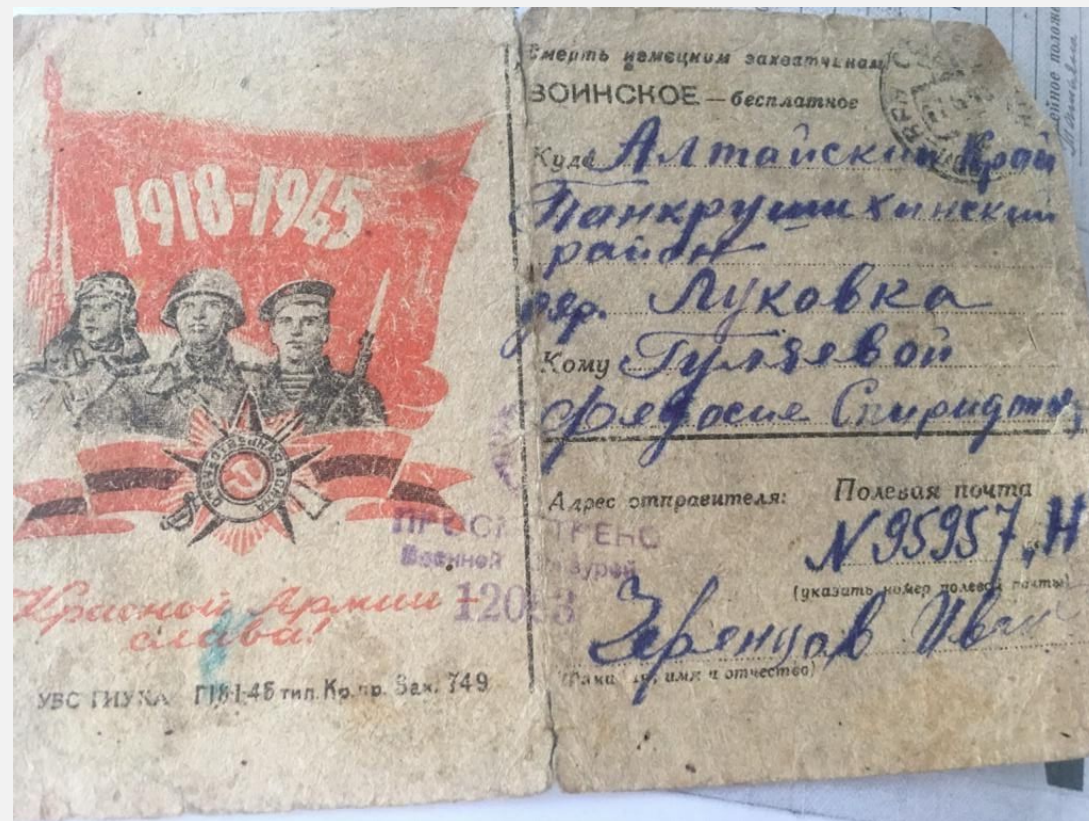 1918-1945
ОТЕЧЕСТВЕННАЯ ВОЙНА
Красной Армии –
слава!
ПРОСМОТРЕНО
Военной Цензурой
12053
749
Смерть немецким захватчинам
ВОИНСКОЕ — бесплатное
Куда Алтайский Край
Панкрушихинский
район
дер. Луковка
Кому Гуляевой
Фядосие
Адрес отправителя: Полевая почта
N 95957 „Н
(указать номер полевой почты)
Иван
(Фамилия, имя и отчество)